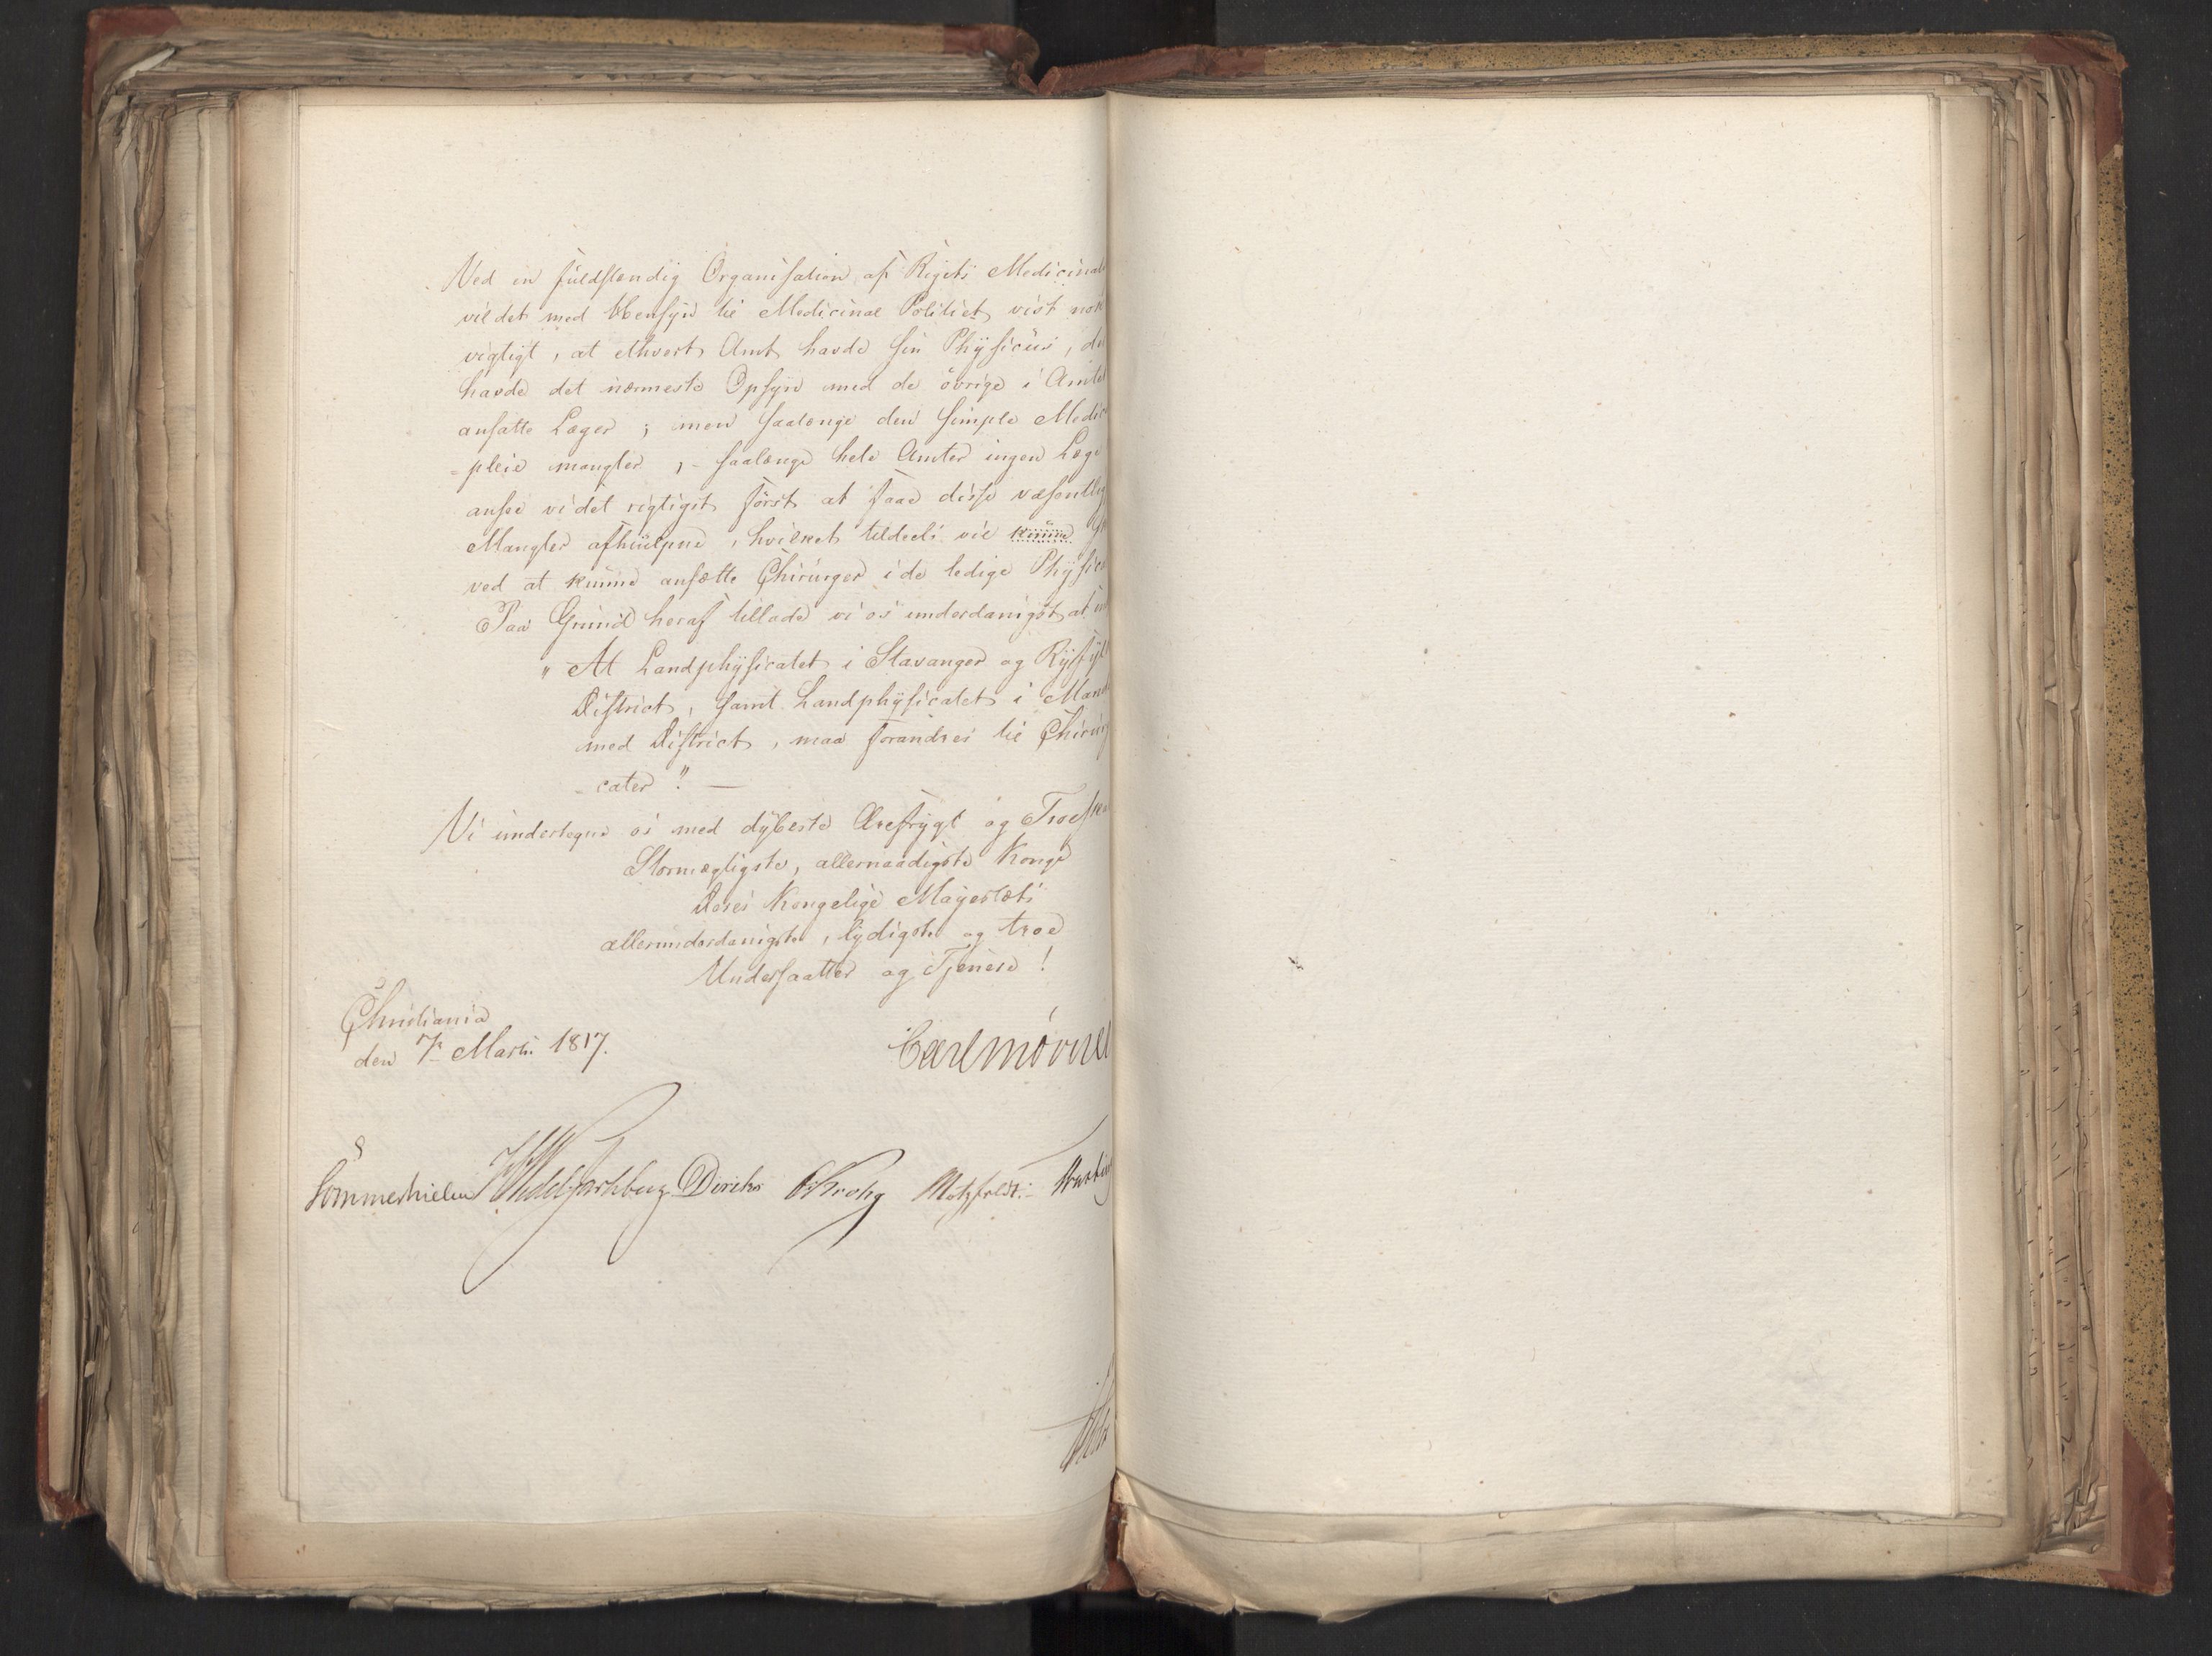 Ved en fuldstændig Organisation af Rigets Medicinal
vil det med Hensyn til Medicinal Politiet vist nok
vigtigt, at ethvert Amt havde sin Physicus, der
havde det nærmeste Opsyn med de övrige i Amtet
ansatte Læger; men saalænge den simple Medici
-pleie mangler, - saalænge hele Amter ingen Læge
ansee vi det rigtigst först at faae disse væsentlig
Mangler afhiulpne, hvilket tildeels vil kunne
ved at kunne ansætte Chirurger i de ledige Physica
Paa Grund heraf tillade vi os underdanigst at in
"At Landphysicatet i Stavanger og Ryfylk
District, samt Landphysicatet i Mand
med District, maa forandres til Chirurg
-cater". —
Vi undertegne os med dybeste Ærefrygt og Troeska
Stormægtigste, allernaadigste Konge
Deres Kongelige Mayestæts
allerunderdanigste, lydigste og troe
Undersaatter og Tjenere!
Christiania
den 7de Marti 1817.
Carl Mörner
Sommerhielm Diriks CKrohg Motzfeldt.